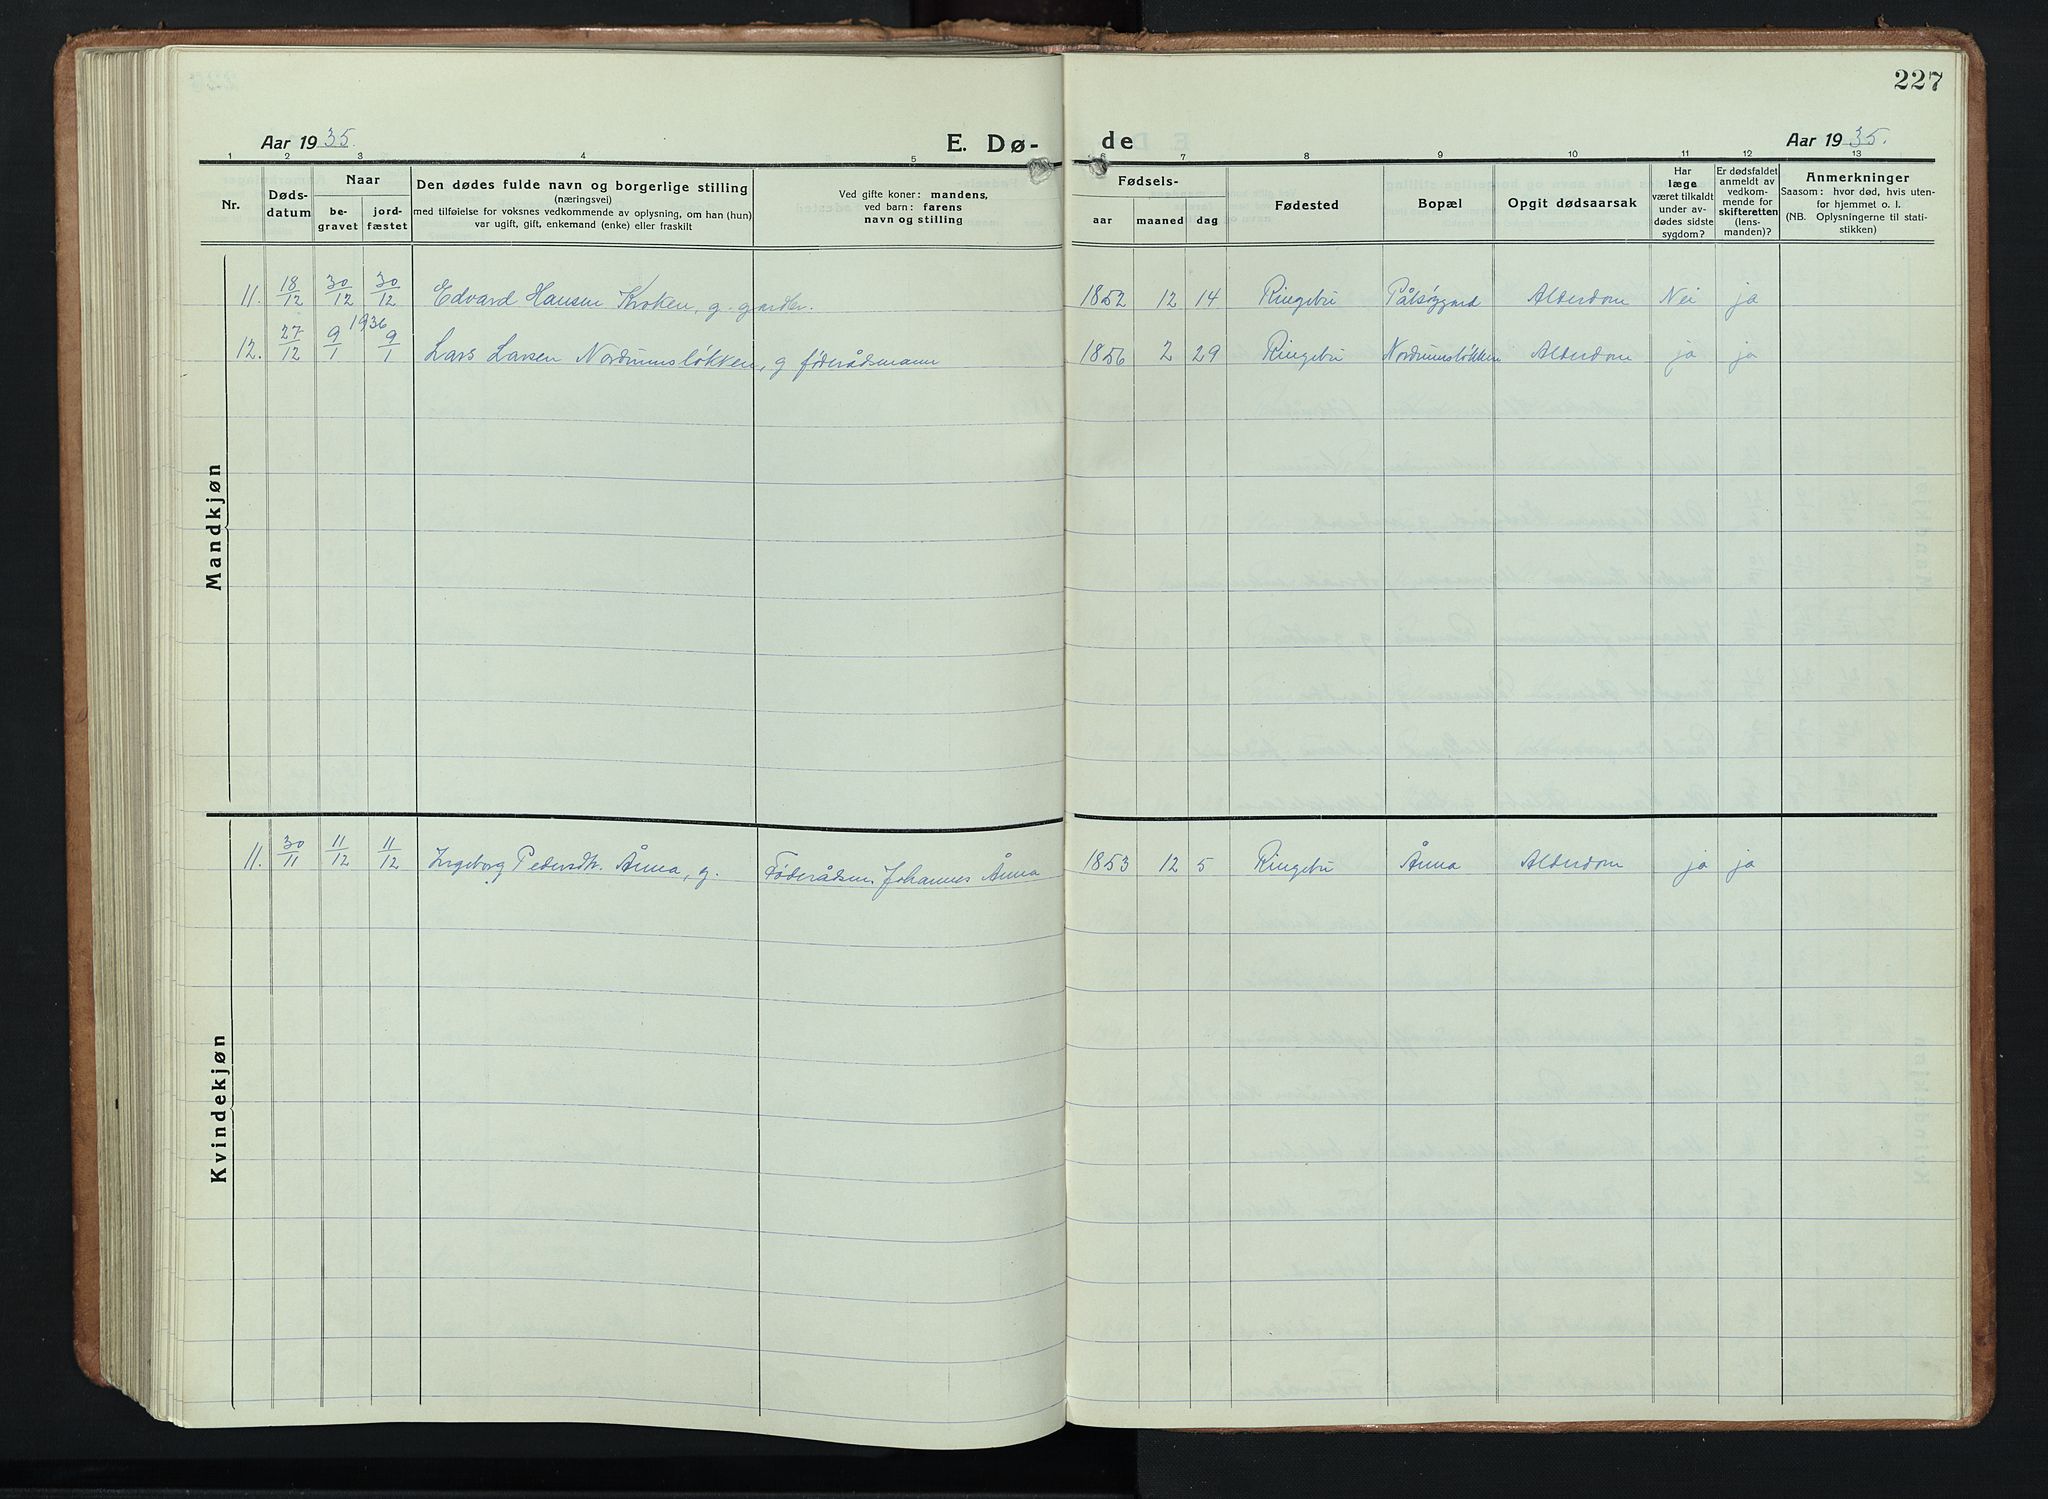 227
Aar 1935.
E. Dø-
de
Aar 1935.
1 2 3 4 5 6 7 8 9 10 11 12 13
Nr.
Døds-
datum
Naar
be-
gravet
jord-
fæstet
Den dødes fulde navn og borgerlige stilling
(næringsvei)
med tilføielse for voksnes vedkommende av oplysning, om han (hun)
var ugift, gift, enkemand (enke) eller fraskilt
Ved gifte koner: mandens,
ved barn: farens
navn og stilling
Fødsels-
aar
maaned
dag
Fødested
Bopæl
Opgit dødsaarsak
Har
læge
været tilkaldt
under av-
dødes sidste
sygdom?
Er dødsfaldet
anmeldt av
vedkom-
mende for
skifteretten
(lens-
manden)?
Anmerkninger
Saasom: hvor død, hvis uten-
for hjemmet o. l.
(NB. Oplysningerne til stati-
stikken)
Mandkjøn
11. 18/12 30/12 30/12 Edvard Hansen Kroken, g. gardbr. 1852 12 14 Ringebu Pålsøygard Alderdom Nei ja
1936
12. 27/12 9/1 9/1 Lars Larsen Nordrumsløkken, g føderådsmann 1856 2 29 Ringebu Nordrumsløkken Alderdom ja ja
Kvindekjøn
11. 30/11 11/12 11/12 Ingeborg Pedersdtr. Ånna, g. Føderådsm. Johannes Ånna 1853 12 5 Ringebu Ånna Alderdom ja ja